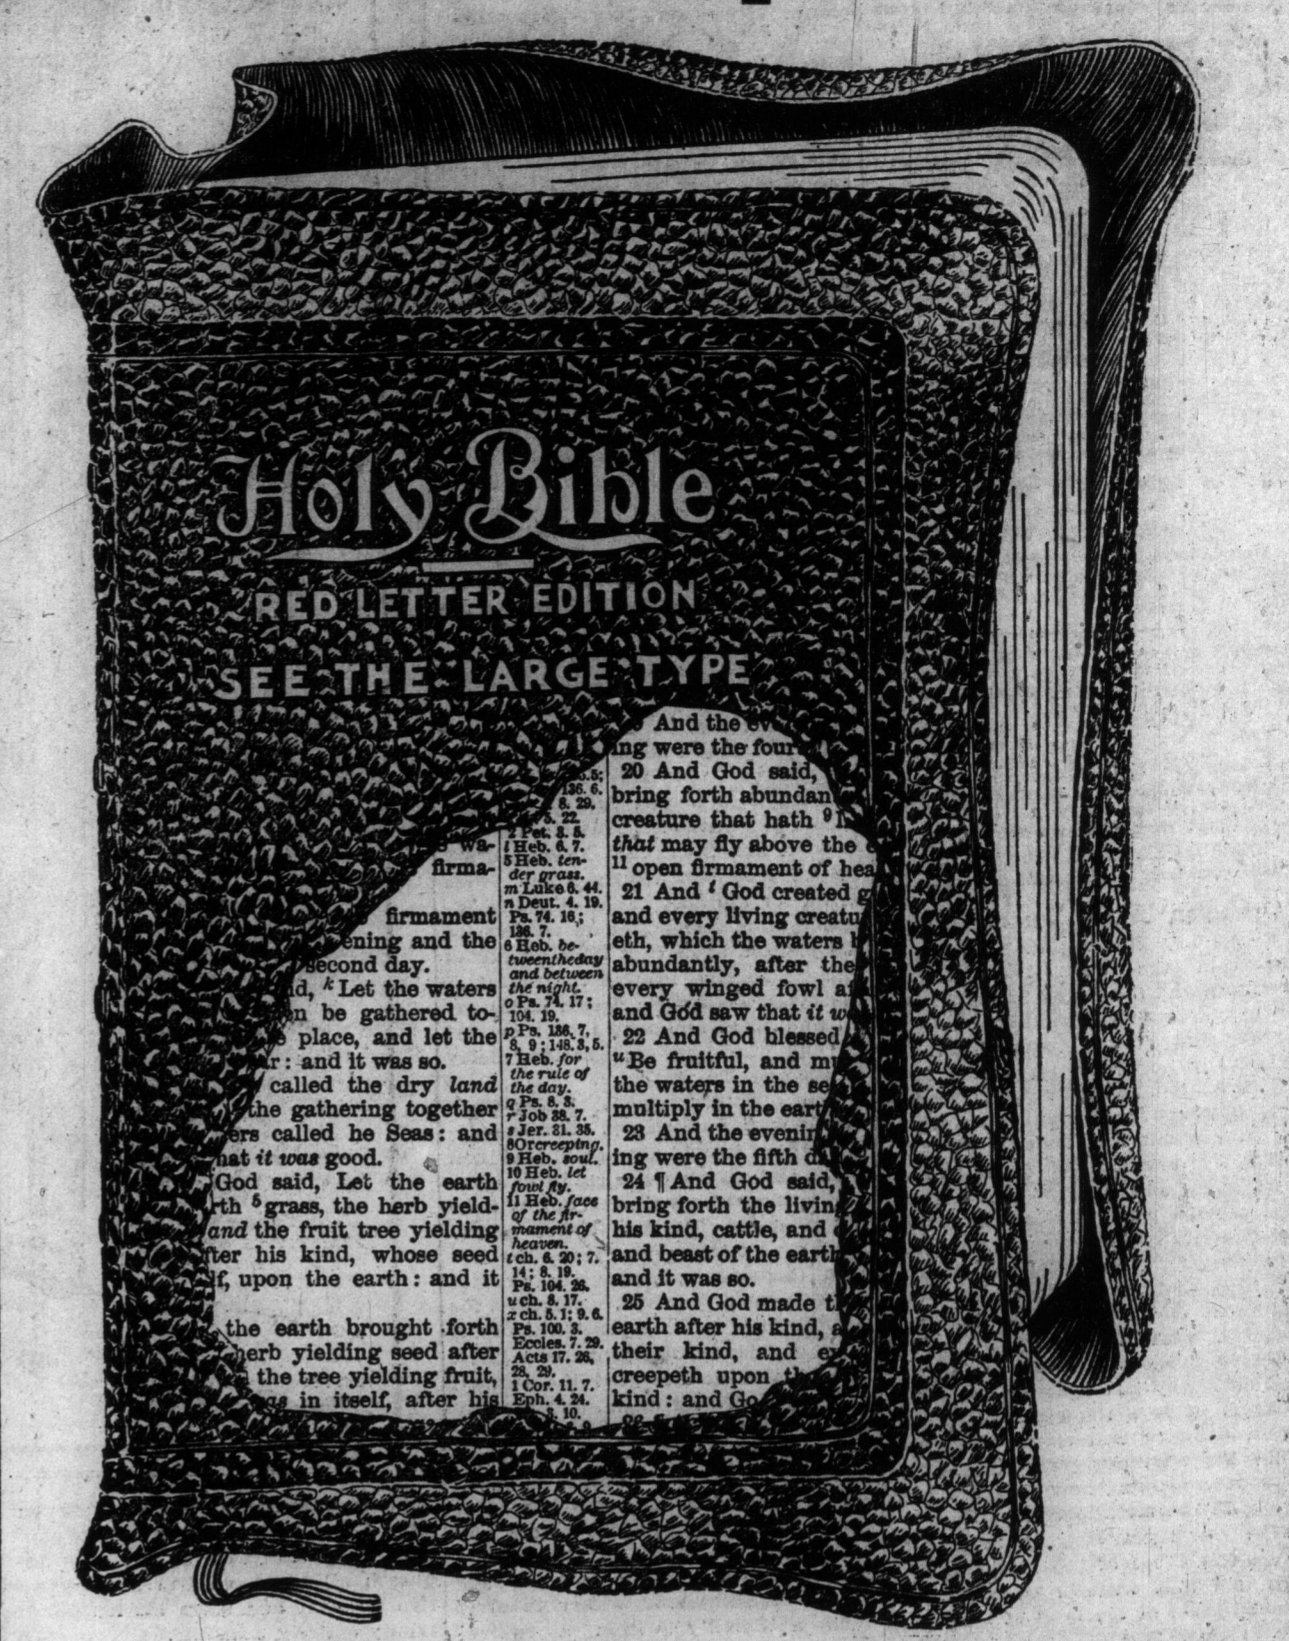 Holy Bible
RED LETTER EDITION
SEE THE LARGE TYPE
wa-
firma-
firmament
ening and the
second day.
d, k Let the waters
n be gathered to-
place, and let the
r: and it was so.
called the dry land
the gathering together
ers called he Seas: and
hat it was good.
God said, Let the earth
rth 5 grass, the herb yield-
and the fruit tree yielding
fter his kind, whose seed
lf, upon the earth: and it
the earth brought forth
herb yielding seed after
the tree yielding fruit,
in itself, after his
5;
136. 6.
8. 29.
5. 22.
2 Pet. 3. 5.
l Heb. 6. 7.
5 Heb. ten-
der grass.
m Luke 6. 44.
n Deut. 4. 19.
Ps. 74. 16;
136. 7.
6 Heb. be-
tween the day
and between
the night.
o Ps. 74. 17;
104. 19.
p Ps. 136. 7,
8, 9; 148. 3, 5.
7 Heb. for
the rule of
the day.
q Ps. 8. 3.
r Job 38. 7.
s Jer. 31. 35.
8 Or creeping.
9 Heb. soul.
10 Heb. let
fowl fly.
11 Heb. face
of the fir-
mament of
heaven.
t ch. 6. 20; 7.
14; 8. 19.
Ps. 104. 26.
u ch. 8. 17.
x ch. 5. 1; 9. 6.
Ps. 100. 3.
Eccles. 7. 29.
Acts 17. 26,
28, 29.
1 Cor. 11. 7.
Eph. 4. 24.
3. 10.
And the ev
ing were the four
20 And God said,
bring forth abundan
creature that hath 9
that may fly above the
11 open firmament of hea
21 And t God created g
and every living creatu
eth, which the waters b
abundantly, after the
every winged fowl a
and God saw that it w
22 And God blessed
u Be fruitful, and mu
the waters in the se
multiply in the eart
23 And the evenin
ing were the fifth d
24 ¶ And God said,
bring forth the livin
his kind, cattle, and
and beast of the earth
and it was so.
25 And God made t
earth after his kind, a
their kind, and e
creepeth upon
kind: and Go